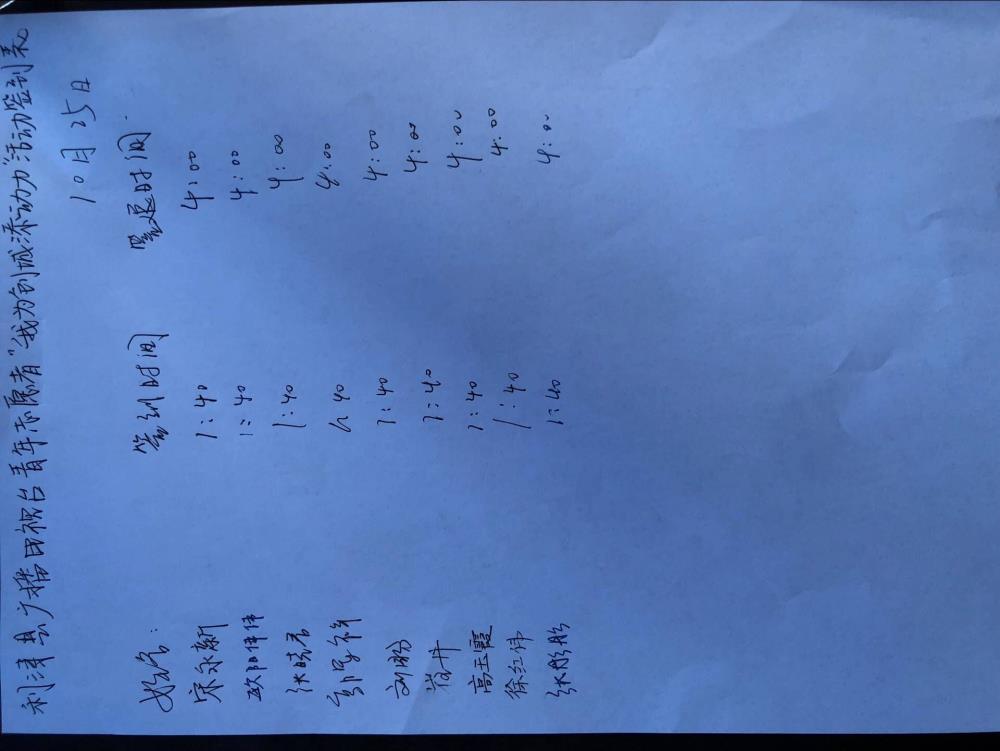 利津县广播电视台青年志愿者"我为创城添动力"活动签到表
10月25日
姓名: 签到时间 签退时间
宋永新 1:40 4:00
欧阳伟伟 1:40 4:00
张晓君 1:40 4:00
1:40 4:00
刘盼 1:40 4:00
崔丹 1:40 4:00
高玉霞 1:40 4:00
徐红伟 1:40 4:00
张彤彤 1:40 4:00